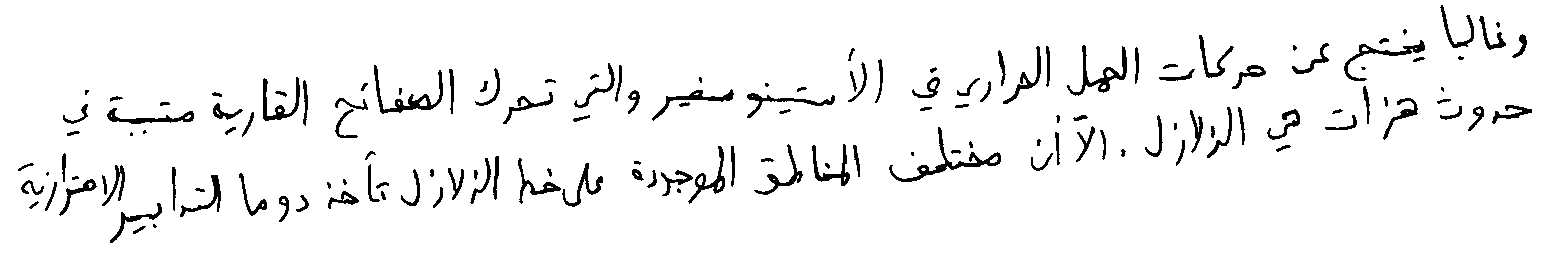 وغالبا ينتج عن حركات الحمل الحراري في الأستينوسفير والتي تحرك الصفائح القارية متسببة في
حدوث هزات هي الزلازل . الآ أن مختلف المناطق الموجودة على خط الزلازل تأخذ دوما التدابير الاحترازية